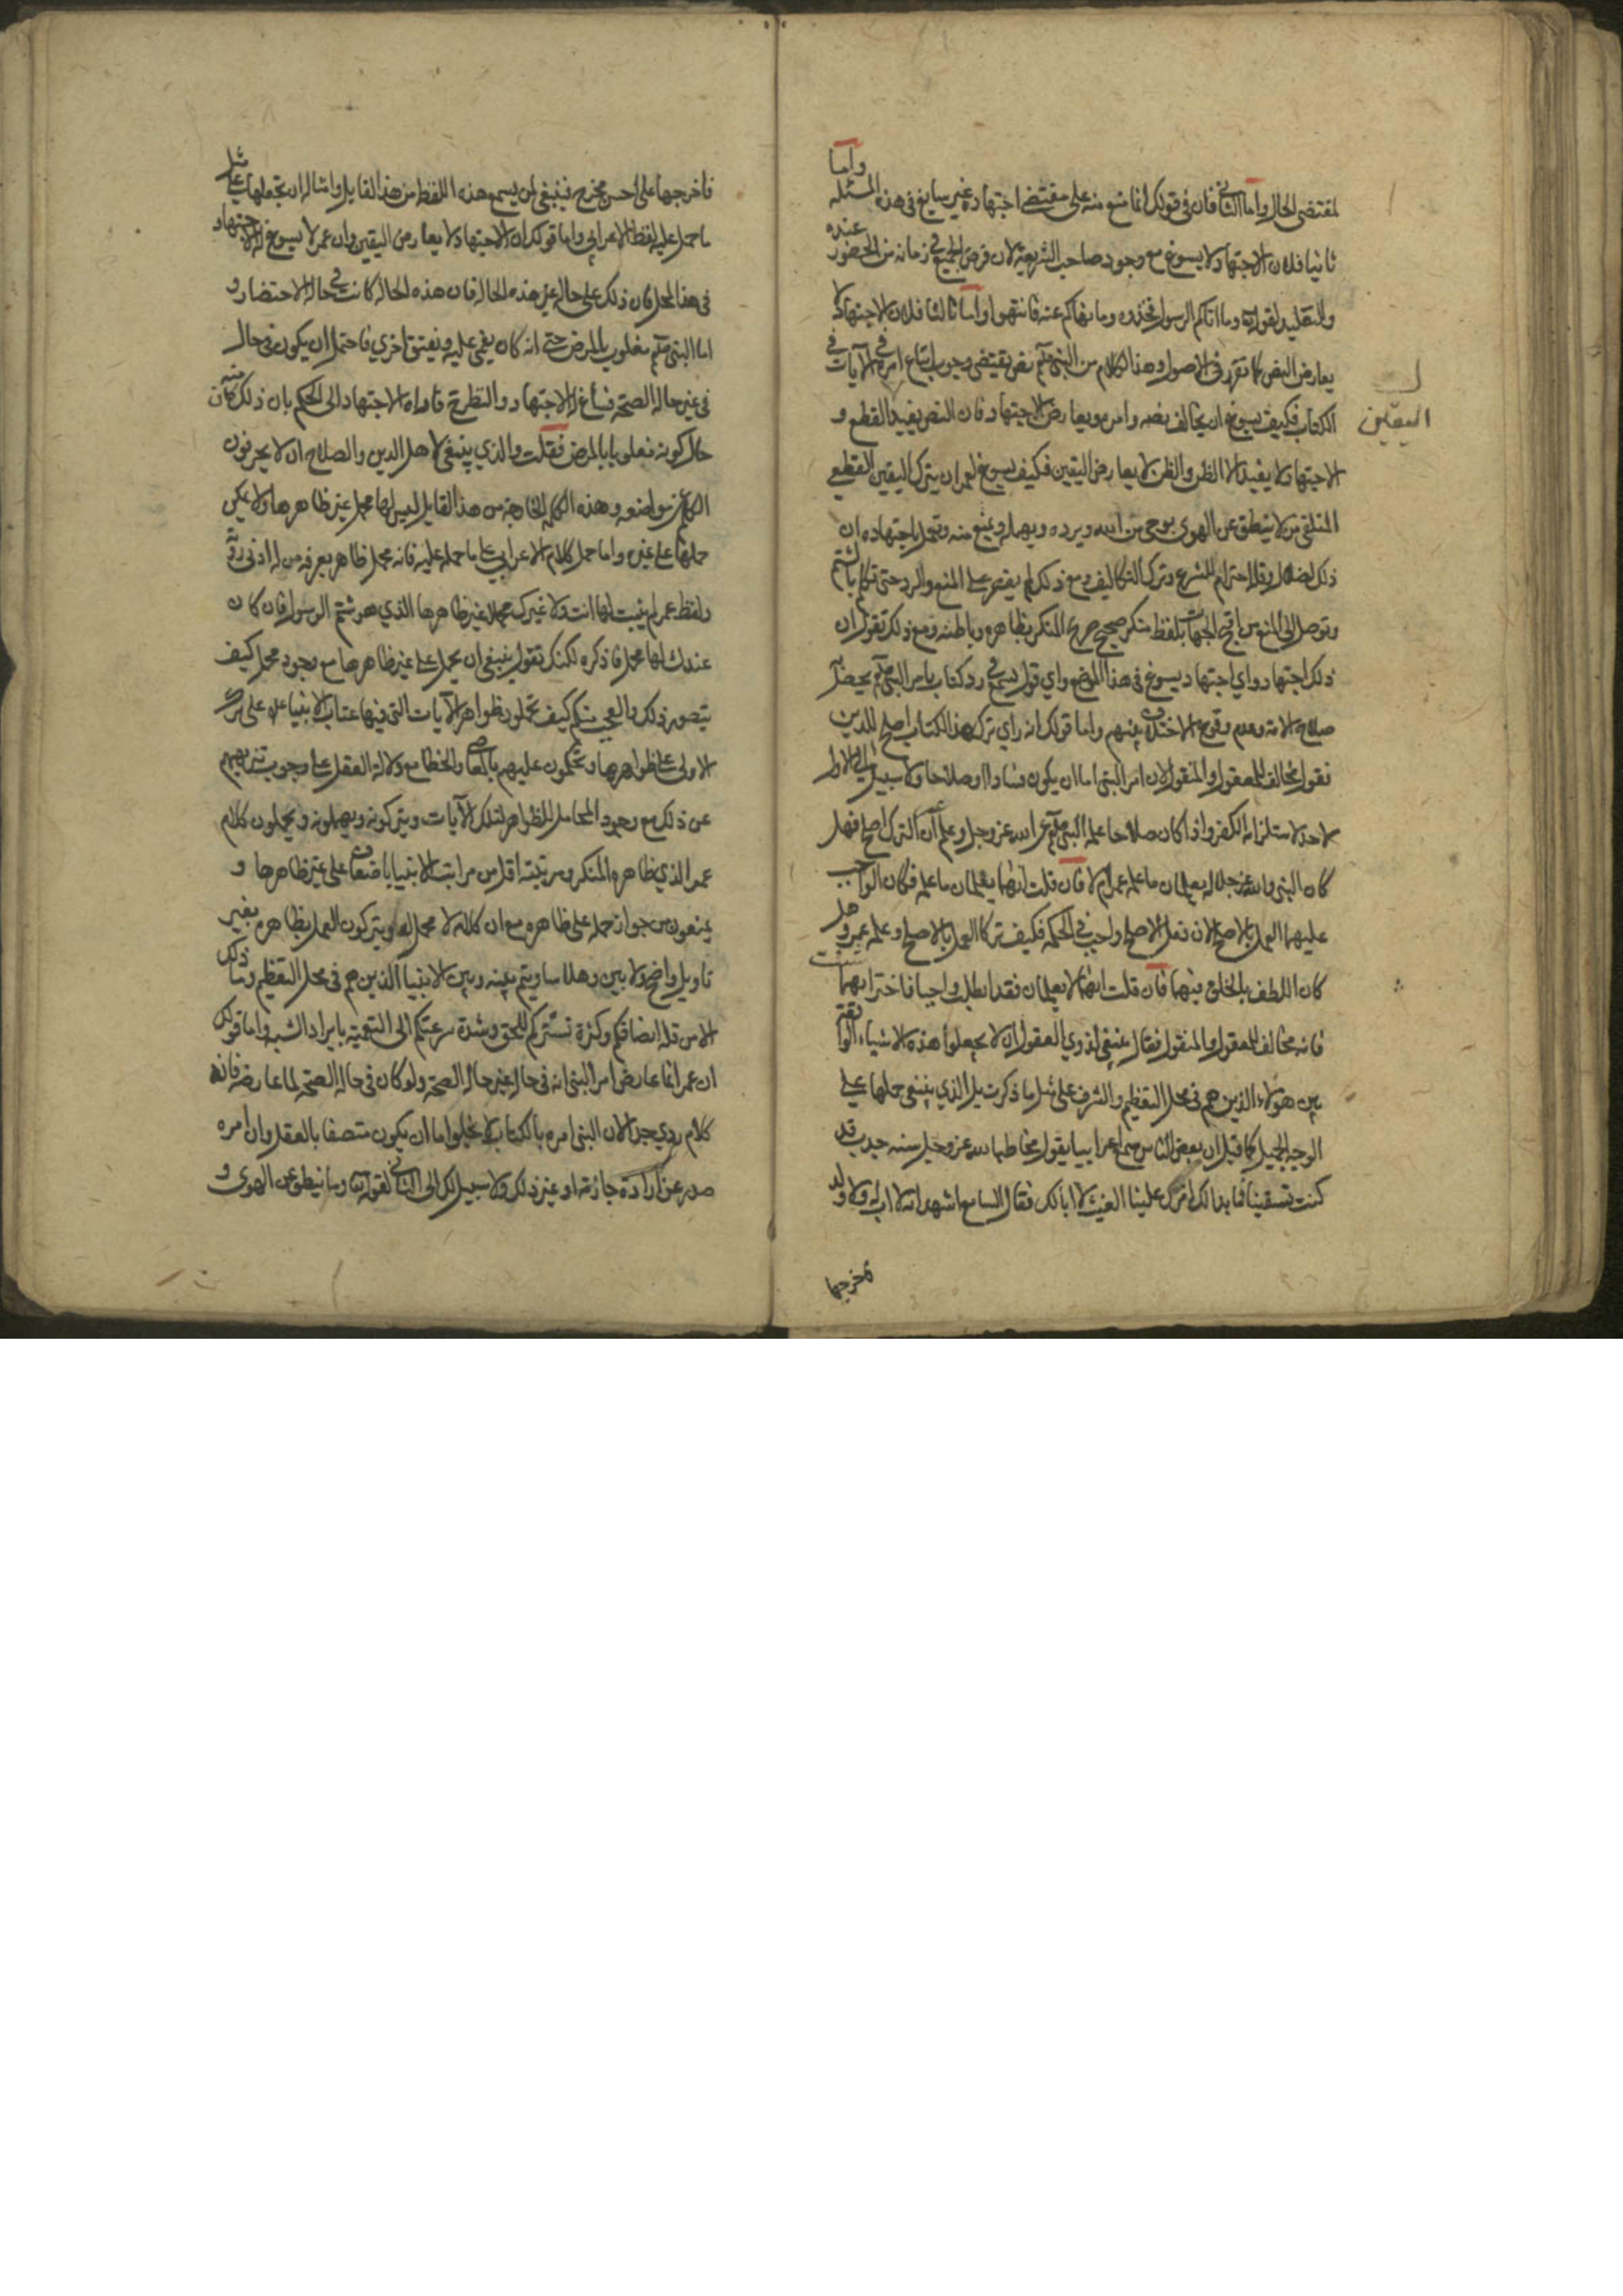 لمقتضى الحال واما الثاني فان في قولك انما منع منه على مقتضى اجتهاده غير سايغ في هذه المسئله واما
ثانيا فلان الاجتهاد لا يسوغ مع وجود صاحب الشريعة لان فرض الجميع في زمانه من الحضور عنده
والتقليد لقوله تع وما اتاكم الرسول فخذوه وما نهاكم عنه فانتهوا واما ثالثا فلان الاجتهاد لا
يعارض النص كما تقرر في الاصول وهذا الكلام من النبي صلعم نص يقتضي وجوب اتباع امره في الآيات في
الكتاب فكيف يسوغ ان يخالف نصه وامره ويعارض الاجتهاد فان النص يفيد القطع و
اليقين
الاجتهاد لا يفيد الا الظن والظن لا يعارض اليقين فكيف يسوغ لعمر ان يترك اليقين القطعي
المتلقى من لا ينطق عن الهوى بوحي من الله ويرده ويهمله ويمنع منه ويعمل باجتهاده ان
ذلك لضلال وقلة احترام للشرع وترك التكاليف ومع ذلك لم يقتصر على المنع والرد حتى تكلم بالشتم
وتوصل الى المنع من اقبح الجهات بلفظ منكر صحيح صريح المنكر بظاهره وباطنه ومع ذلك تقول ان
ذلك اجتهاد واي اجتهاد يسوغ في هذا الموضع واي قول يسمع في رد كتاب يامر النبي صلعم يحصل
صلاح الامة وعدم وقوع الاختلاف بينهم واما قولك انه راى ترك هذا الكتاب اصلح للدين
فقول مخالف للمعقول والمنقول لان امر النبي اما ان يكون فسادا او صلاحا ولا سبيل الى الاول
لاحد لاستلزامه الكفر واذا كان صلاحا علمه النبي صلعم عن الله عز وجل وعلم ان الترك اصلح فهل
كان النبي والله عز وجل يعلمان ما علمه عمر ام لا فان قلت انهما يعلمان ما علمه فكان الواجب
عليهما العمل بالاصلح لان فعل الاصلح واجب في الحكمة فكيف تركا العمل بالاصلح وعلمه عمر وهل
كان اللطف بالخلق منهما فان قلت انهما لا يعلمان فقد ابطلت واجبا فاختر ايهما شئت
فانه مخالف للمعقول والمنقول فقال ينبغي لذوي العقول ان لا يجعلوا هذه الاشياء الواقعة
بين هولاء الذين هم في محل التعظيم والشرف على مثل ما ذكرت بل الذي ينبغي حملها على
الوجه الجميل كما قيل ان بعض الناس سمع اعرابيا يقول مخاطبا لله عز وجل سنة جدب قد
كنت تسقينا فما بدا لك انزل علينا الغيث لا ابا لك فقال السامع اشهد انه لا اب له ولا ولد
فاخرجها
فاخرجها على احسن مخرج فينبغي لمن يسمع هذه اللفظ من هذا القايل وامثاله ان تجعلها على مثل
ما حمل عليه لفظ الاعرابي واما قولك ان الاجتهاد لا يعارض اليقين وان عمر لا يسوغ له الاجتهاد
في هذا المحل كان ذلك على حال غير هذه الحالة فان هذه الحالة كانت في حالة الاحتضار و
اما النبي صلعم مغلوب بالمرض حتى انه كان يغمى عليه ويفيق اخرى فاحتمل ان يكون في حال
في غير حالة الصحة فساغ له الاجتهاد والنظر فاداه الاجتهاد الى الحكم بان ذلك كان منه
حال كونه مغلوبا بالمرض فقلت والذي ينبغي لاهل الدين والصلاح ان لا يحرفون
الكلم عن مواضعه وهذه الكلمة الخارجة من هذا القايل ليس لها محمل غير ظاهرها ولا يمكن
حملها على غيره واما حمل كلام الاعرابي على ما حمله عليه فانه محمل ظاهر يعرفه من له ادنى ذوق
ولفظ عمر لم يثبت لها انت ولا غيرك محملا غير ظاهرها الذي هو شتم الرسول فان كان
عندك لها محمل فاذكره لكنك تقول ينبغي ان يحمل على غير ظاهرها مع وجود محمل كيف
يتصور ذلك والعجب منكم كيف تحملون ظواهر الآيات التي فيها عتاب الانبياء على ترك
الاولى على ظواهرها وتحكمون عليهم بالمعاصي والخطا مع دلالة العقل على وجوب تنزيههم
عن ذلك مع وجود المحامل للظواهر لتلك الآيات ويتركونه ويهملونه ويحملون كلام
عمر الذي ظاهره المنكر ومرتبته اقل من مراتب الانبيا باضعاف على غير ظاهرها و
يمنعون من جواز حمله على ظاهره مع ان كلامه لا محمل له ويتركون العمل بظاهره بغير
تاويل واضح ولا بين وهلا ساويتم بينه وبين الانبيا الذين هم في محل التعظيم وما ذلك
الا من قلة انصافكم وكثرة تستركم للحق وشدة سرعتكم الى التعمية بايراد الشبه واما قولك
ان عمر انما عارض امر النبي انه في حال غير حالة الصحة ولو كان في حالة الصحة لما عارضه فانه
كلام ردي جدا لان النبي امره بالكتاب لا يخلوا اما ان يكون متصفا بالعقل وان امره
صدر عن ارادة جازمة او غير ذلك ولا سبيل لك الى الثاني لقوله تع وما ينطق عن الهوى و